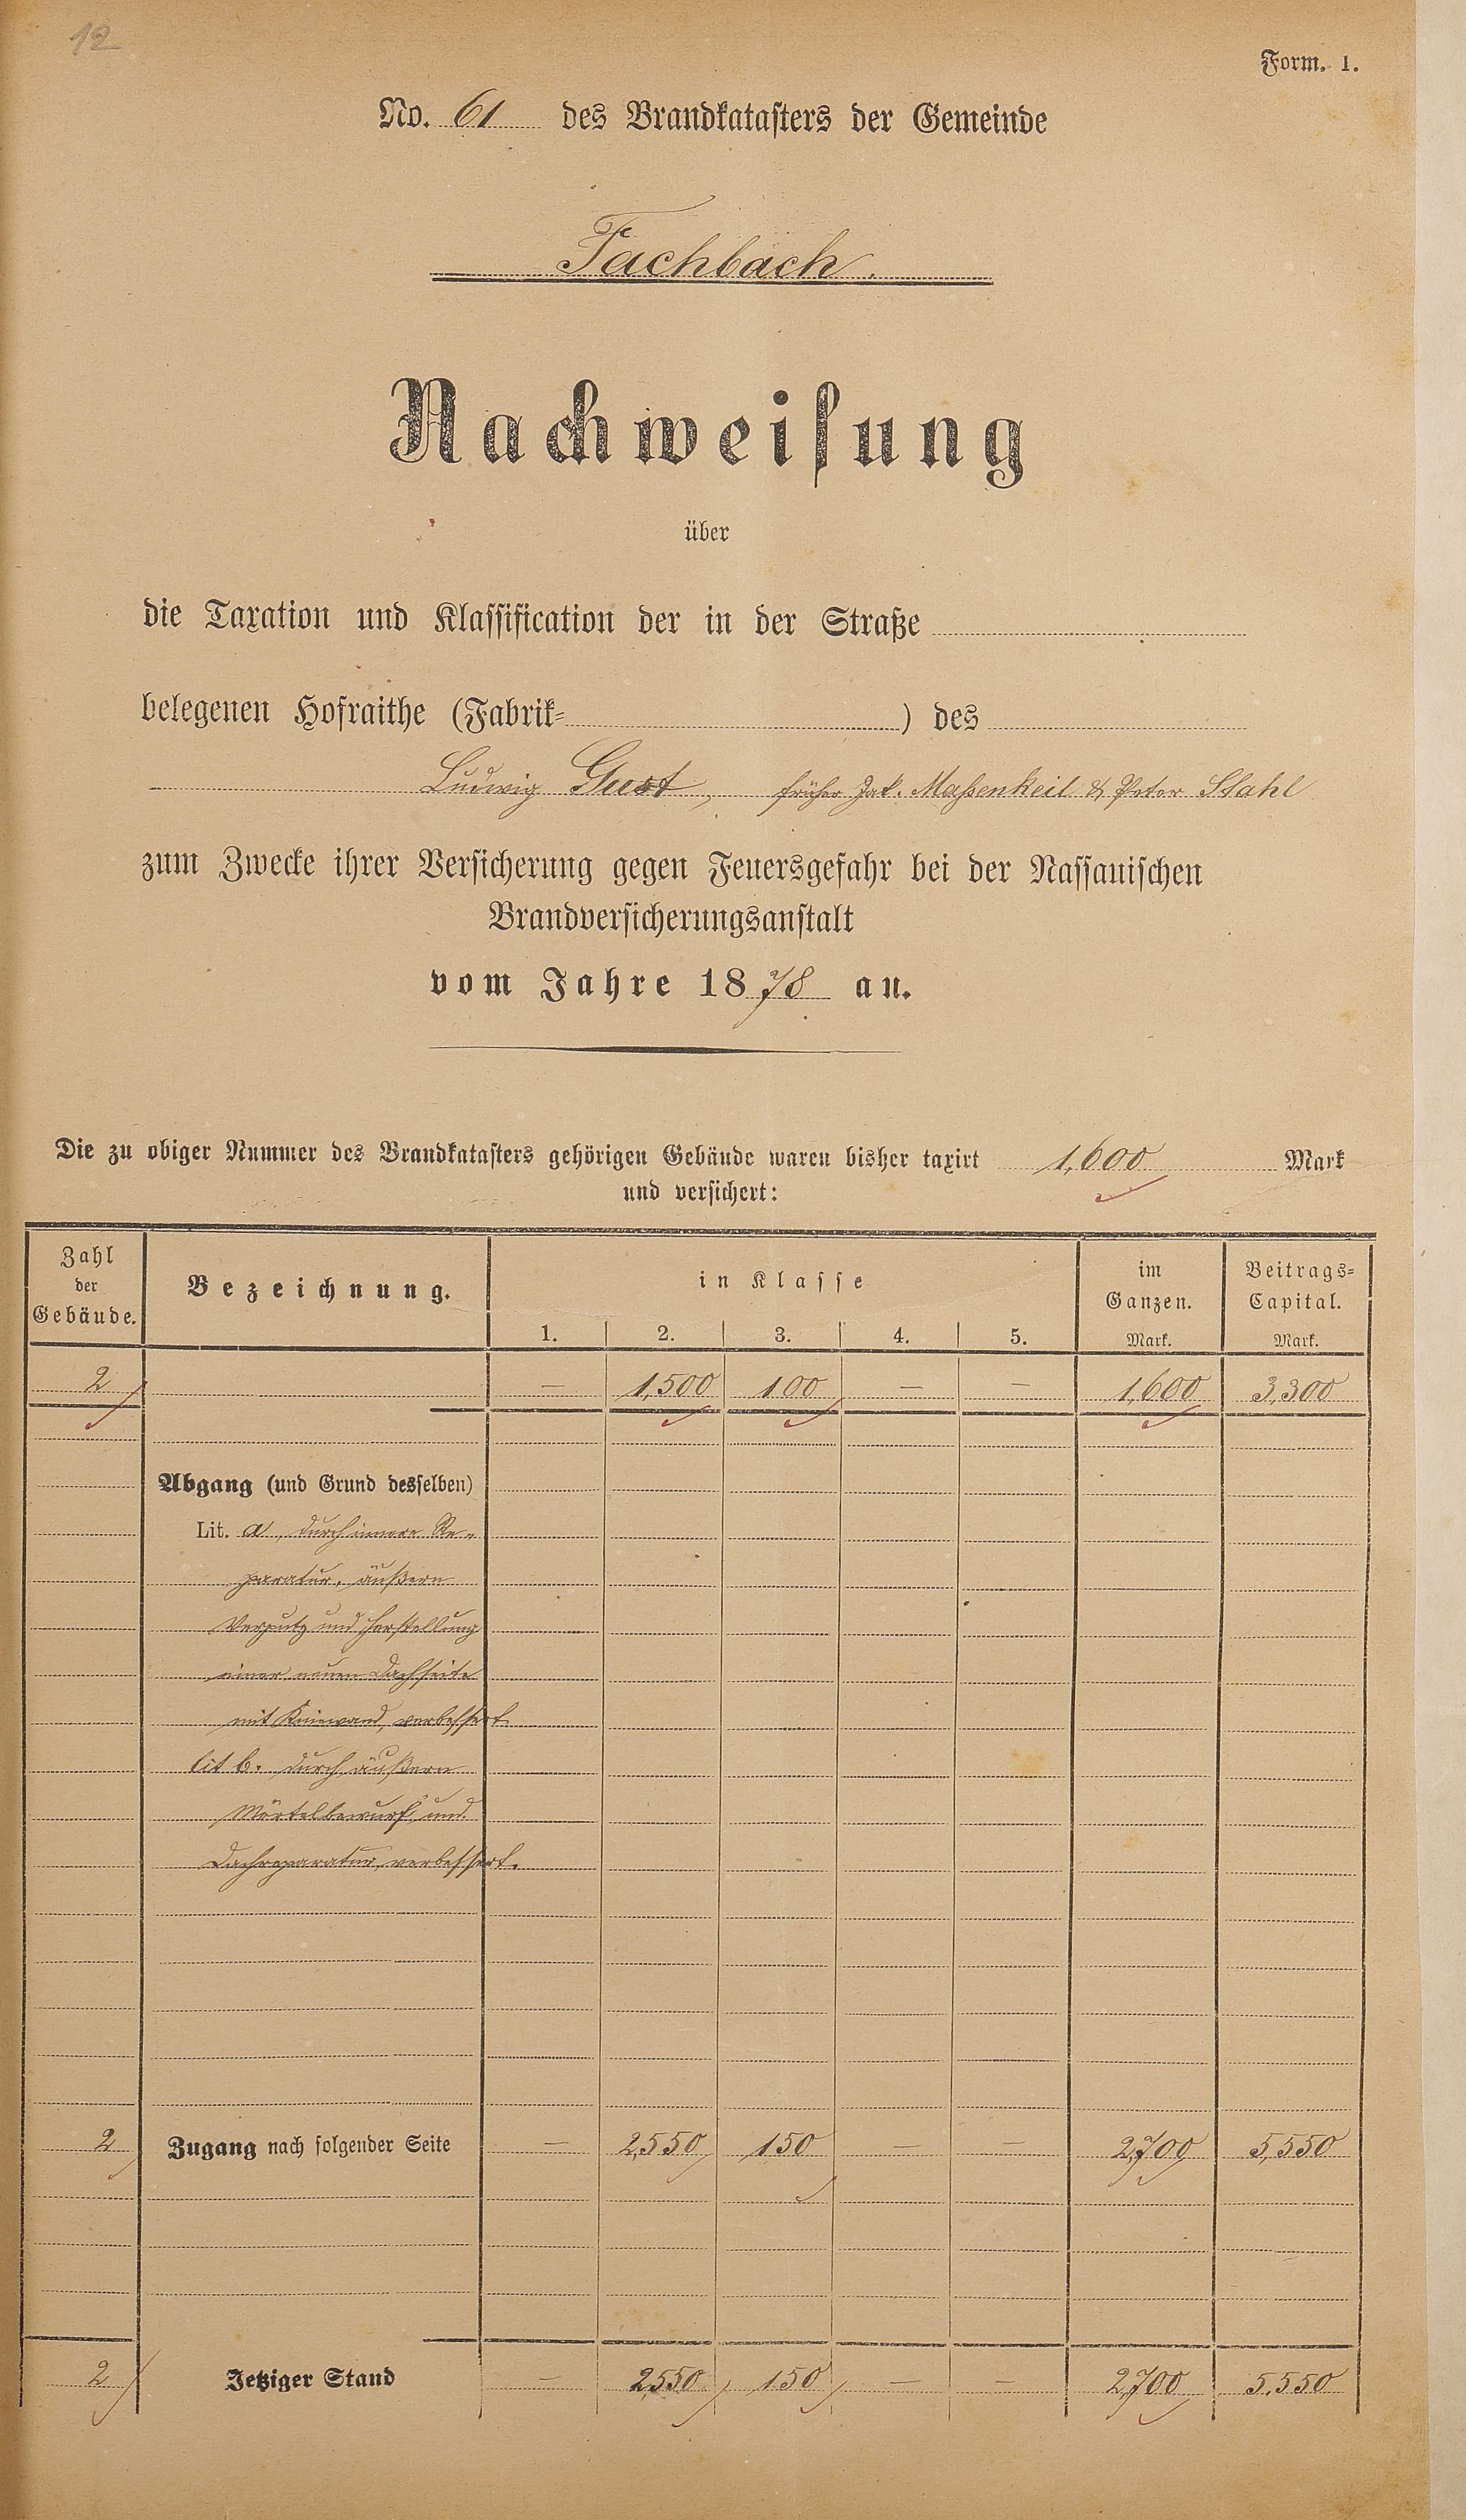 12
Form. 1.
No. 61 des Brandkatasters der Gemeinde
Fachbach.
Nachweisung
über
die Taxation und Klassification der in der Straße
belegenen Hofraithe (Fabrik- ) des
Ludwig Gust, früher Jak. Maßenkeil & Peter Stahl
zum Zwecke ihrer Versicherung gegen Feuersgefahr bei der Nassauischen
Brandversicherungsanstalt
vom Jahre 1878 an.
Die zu obiger Nummer des Brandkatasters gehörigen Gebäude waren bisher taxirt 1,600 Mark
und versichert:
Zahl der Gebäude. Bezeichnung. in Klasse im Ganzen. Beitrags-Capital.
1. 2. 3. 4. 5. Mark. Mark.
2 — 1,500 100 — — 1,600 3,300
Abgang (und Grund desselben)
Lit. a, durch innere Re-
paratur, äußern
Verputz und Herstellung
einer neuen Dachseite
mit Kniewand, verbessert.
lit b. durch äußern
Mörtelbewurf und
Dachreparatur, verbessert.
2 Zugang nach folgender Seite — 2,550 150 — — 2,700 5,550
2 Jetziger Stand — 2550 150 — — 2,700 5.550